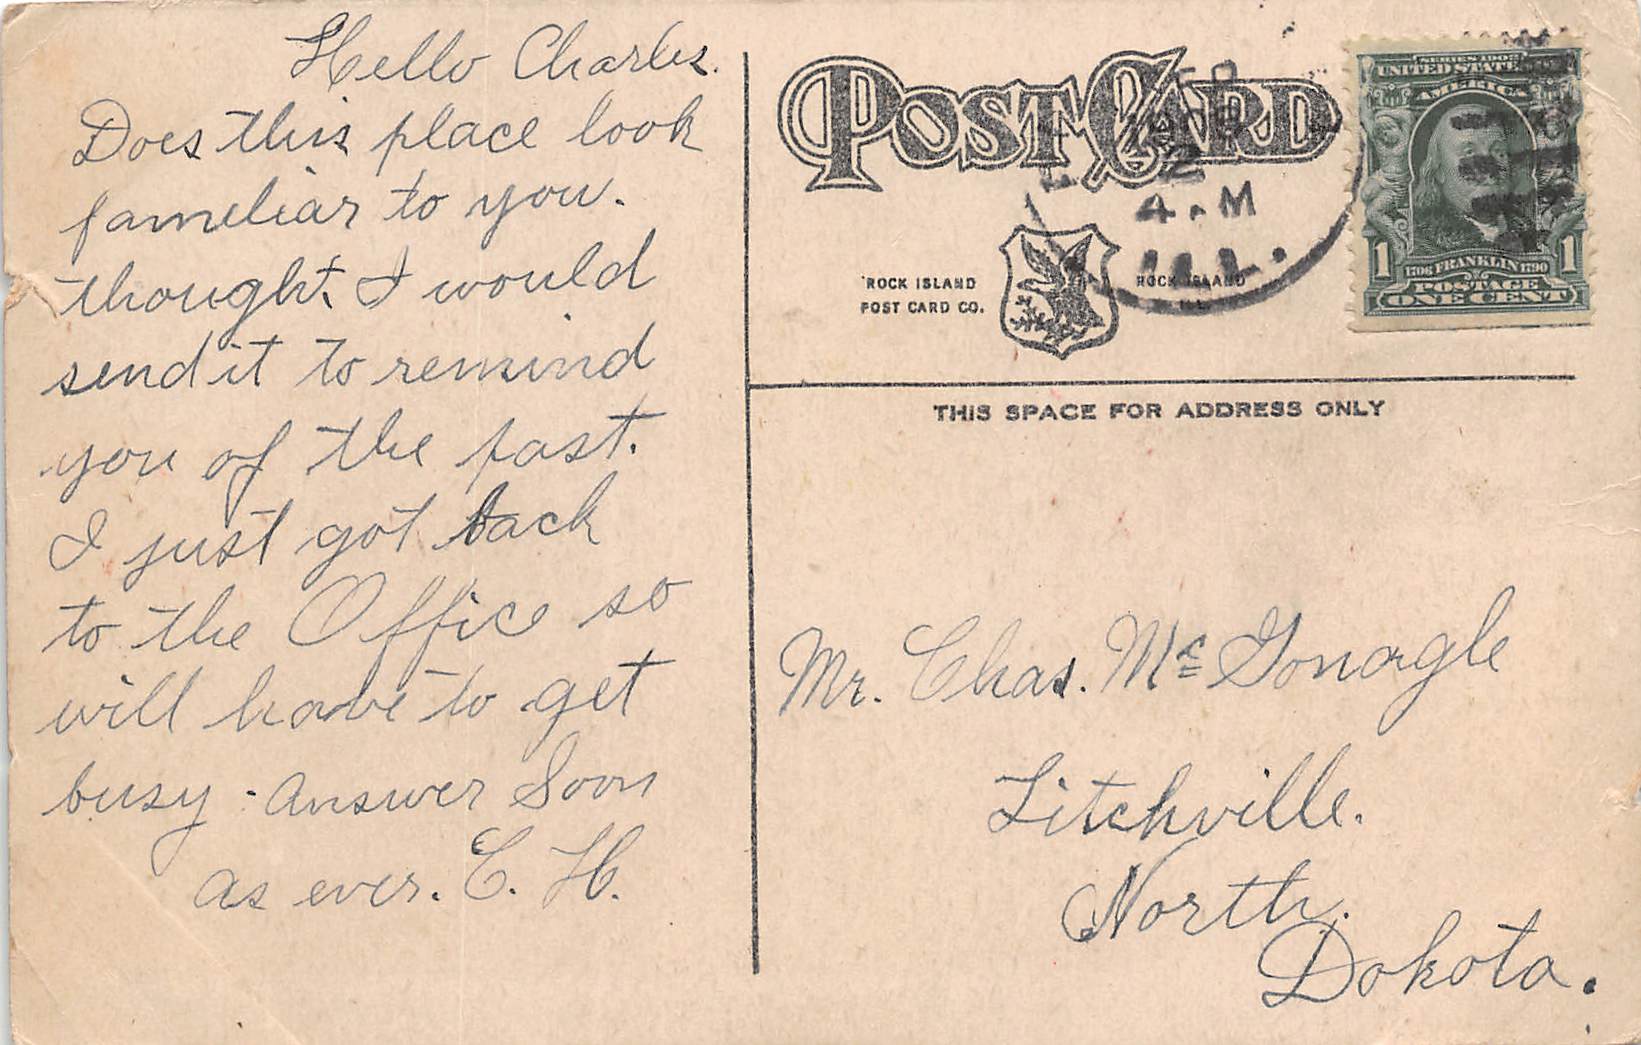 Hello Charles.
Does this place look
fameliar to you.
thought I would
send it to remind
you of the past.
I just got back
to the Office so
will have to get
busy. Answer Soon
as ever. E. H.
POST CARD
4. M
ILL.
ROCK ISLAND
POST CARD CO.
ROCK ISLAND
ILL.
SERIES 1902
UNITED STATES
AMERICA
1 1
1706 FRANKLIN 1790
POSTAGE
ONE CENT
THIS SPACE FOR ADDRESS ONLY
Mr. Chas. Mc Gonagle
Litchville.
North.
Dakota.